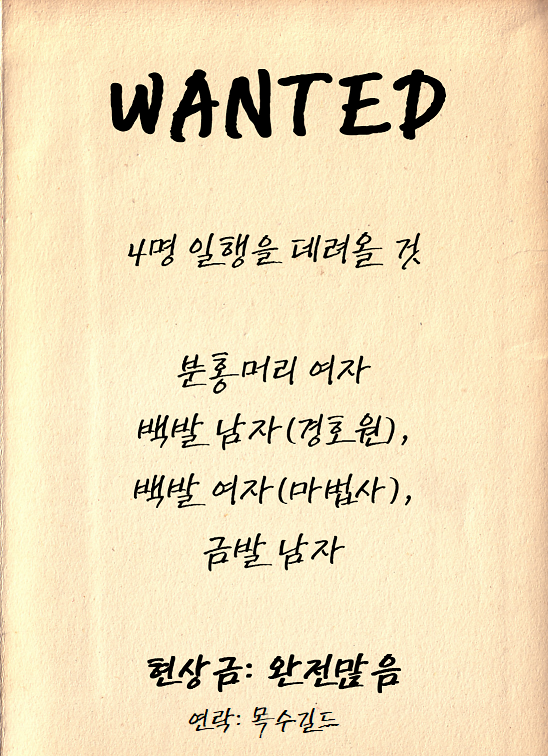 WANTED
4명 일행을 데려올 것
분홍머리 여자
백발 남자(경호원),
백발 여자(마법사),
금발 남자
현상금: 완전많음
연락: 목수길드